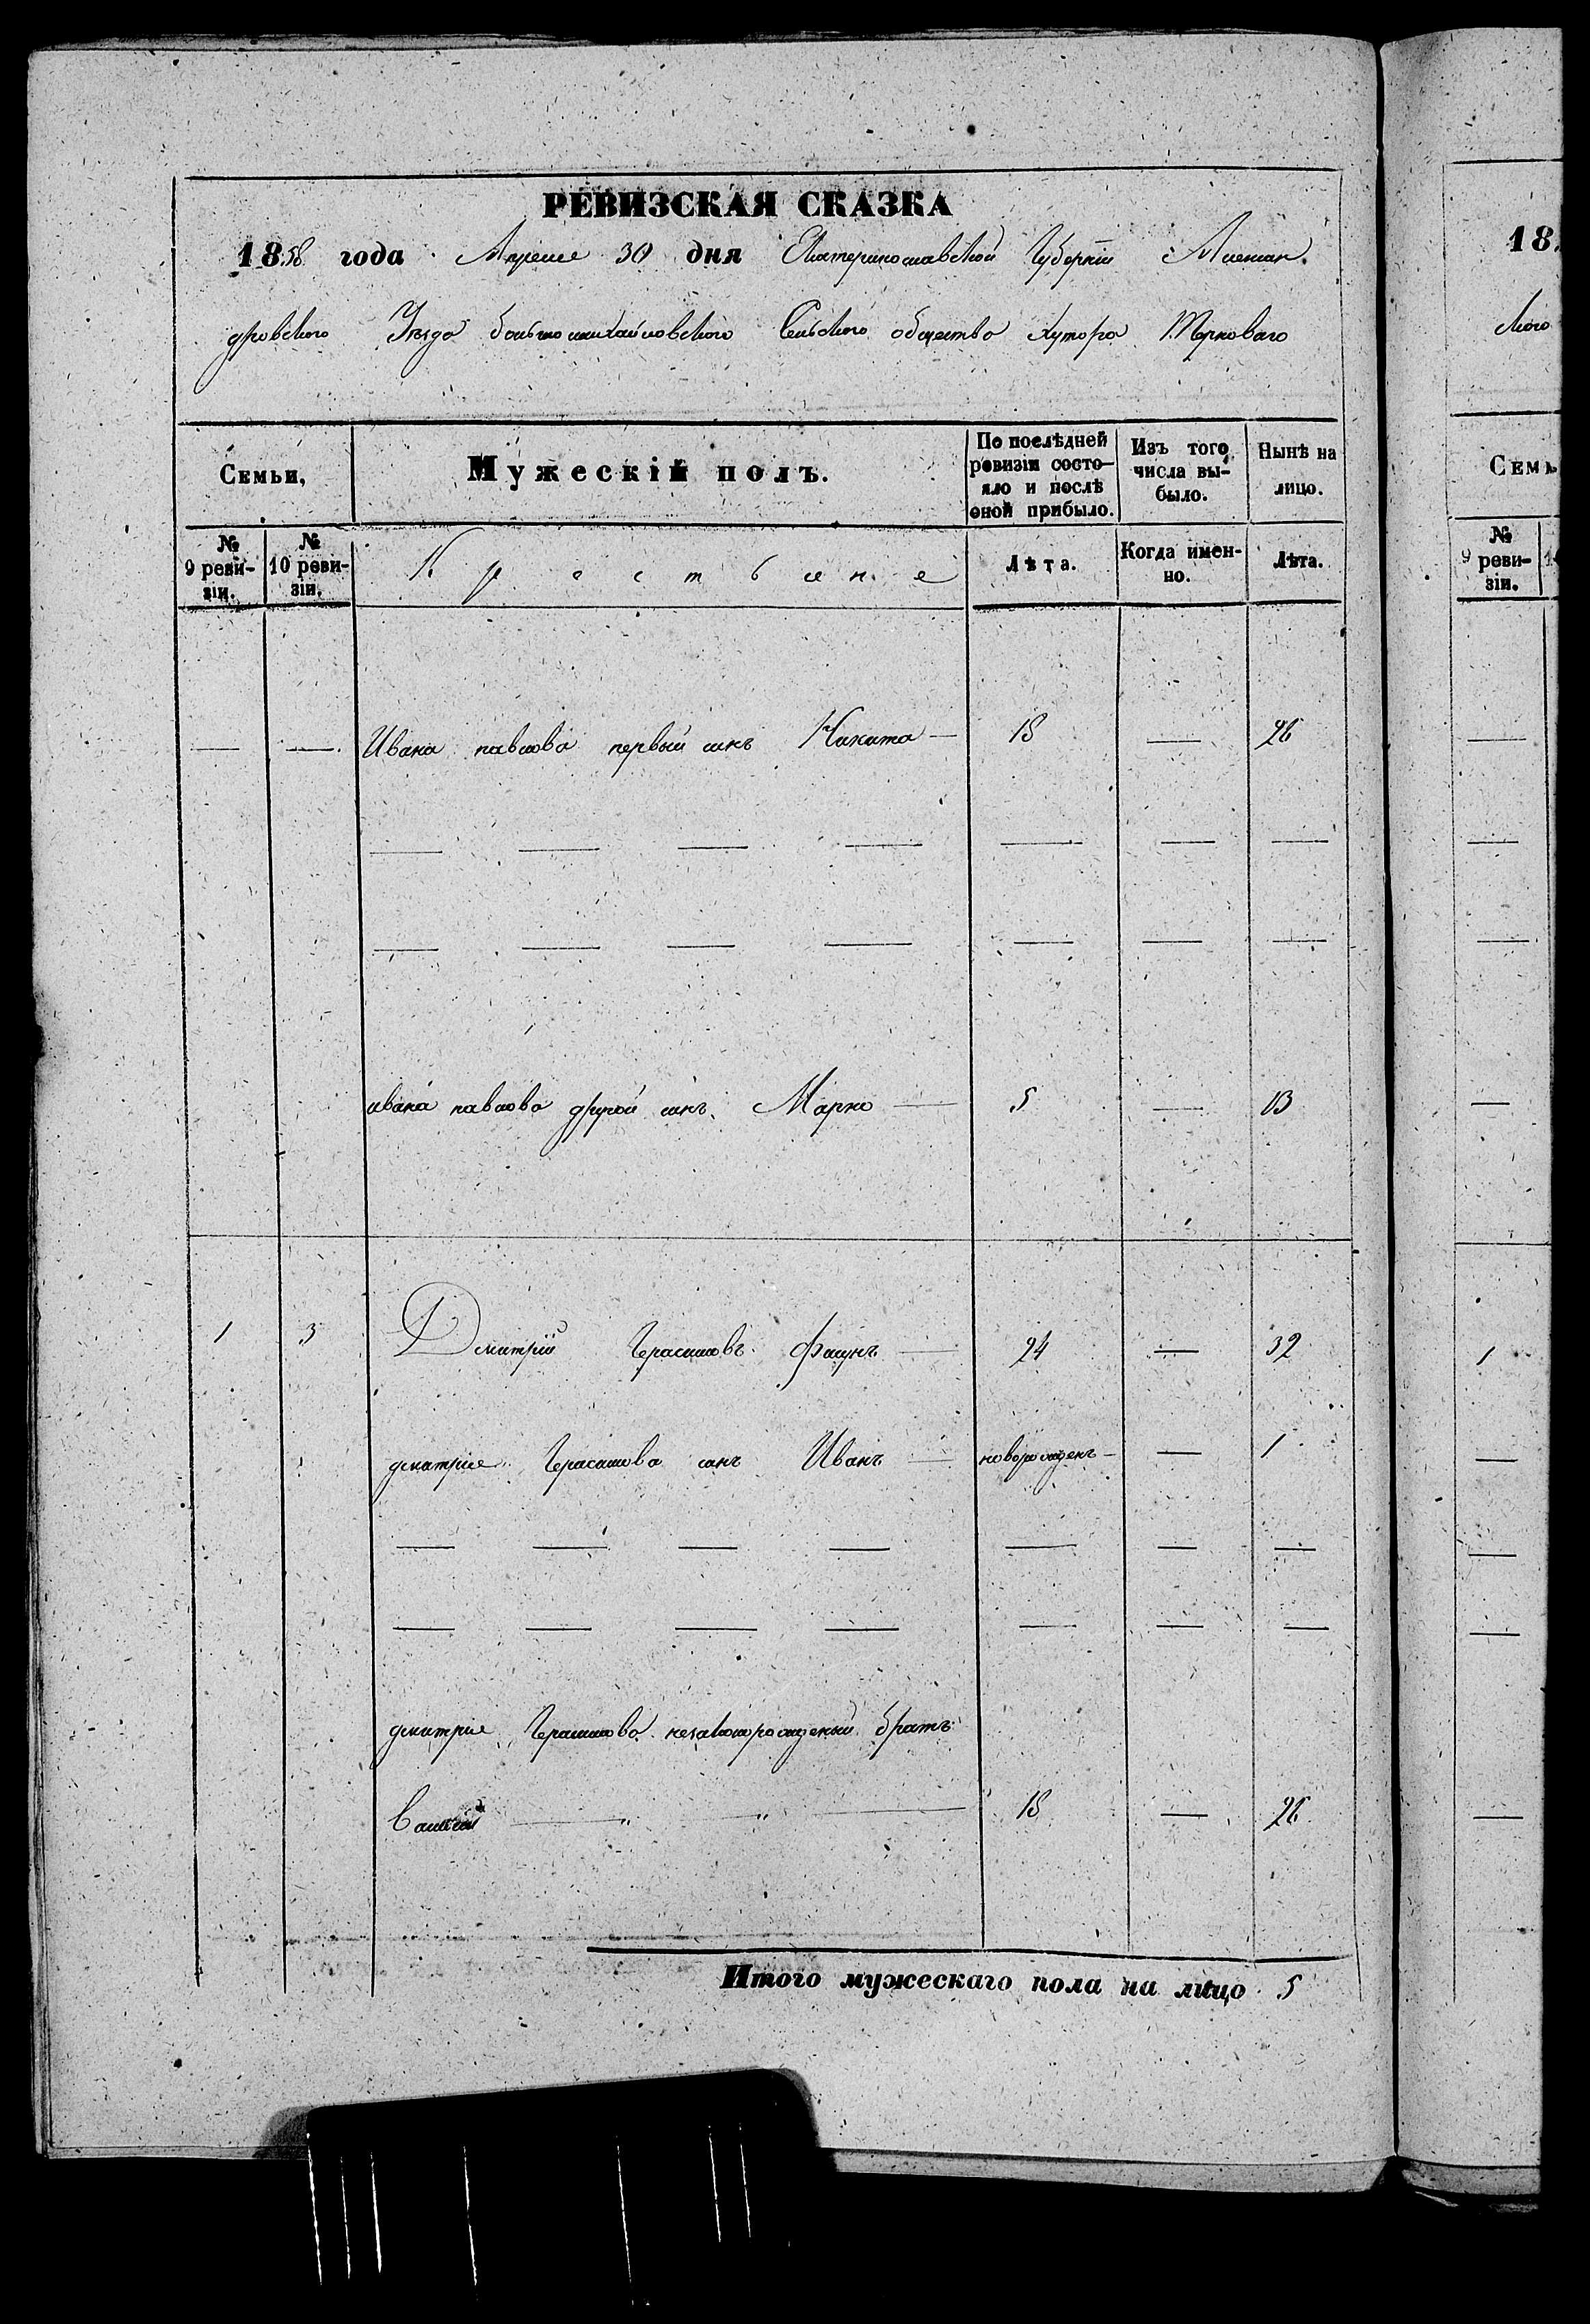 РЕВИЗСКАЯ СКАЗКА
1858 года Апреля 30 дня Екатеринославской Губернїи Алексан
дровского Уезда большемихайловского Сельского общества Хутора Терноваго
Семьи,
Мужескій полъ.
По послѣдней ревизіи состояло и послѣ оной прибыло.
Изъ того числа выбыло.
Нынѣ на лицо.
№ 9 ревизіи.
№ 10 ревизіи.
Крестьяне
Лѣта.
Когда именно.
Лѣта.
— — Ивана павлова первый сынъ Никита — 18 — 26
ивана павлова другой сынъ Марко — 5 — 13
1 3 Дмитрїй Герасимовъ — 24 — 32
дмитрия Герасимова сынъ Иванъ — новорожденъ — — 1
дмитрия Герасимова незаконорожденый братъ
Василий — " " — 18 — 26
Итого мужескаго пола на лицо 5
18
ского
Семь
№ 9 ревизіи.
1